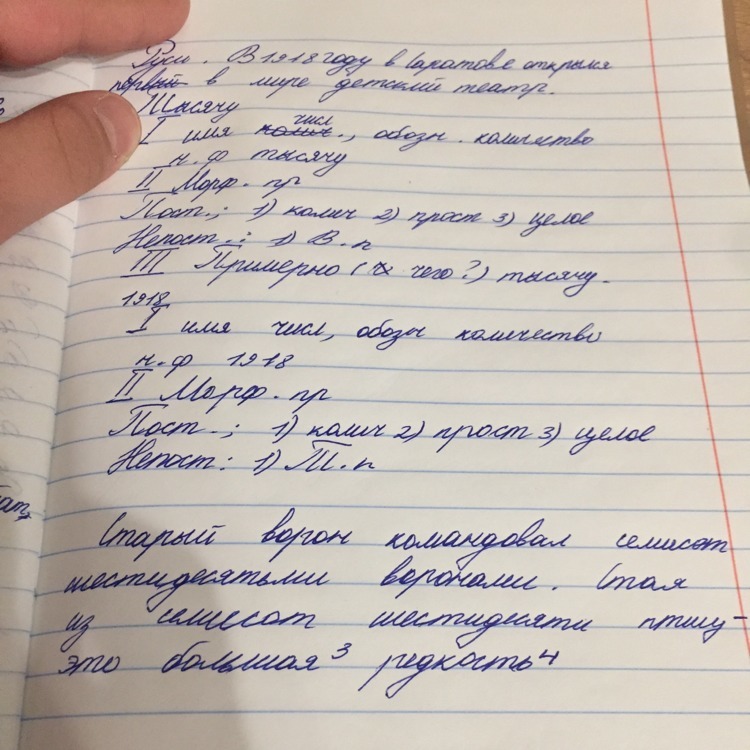 Руси. В 1918 году в Саратове открыля
первый в мире детский театр.
Тысячу
I имя колич. числ., обозн. количество
н.ф тысячу
II Морф. пр
Пост.; 1) колич 2) прост 3) целое
Непост.: 1) В.п
III Примерно (чего?) тысячу.
1918
I имя числ, обозн количество
н.ф 1918
II Морф. пр
Пост.; 1) колич 2) прост 3) целое
Непост: 1) Т.п
Старый ворон командовал семисот
шестидесятьми воронами. Стая
из семисот шестидесяти птиц-
это большая³ редкость⁴